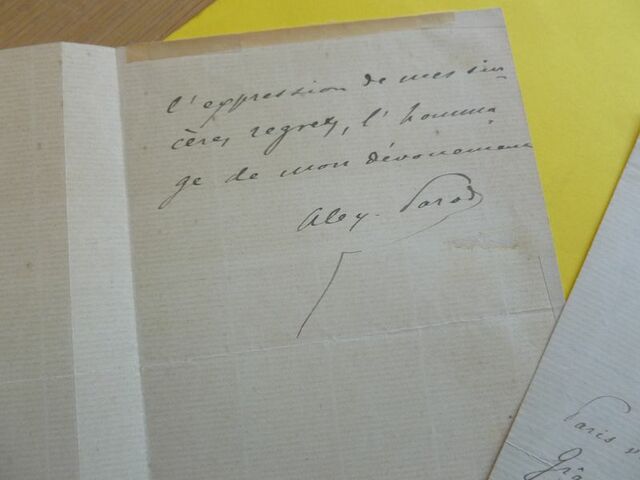 l'expression de mes sin-
cères regrets, l'homma
ge de mon dévouement
Alex. Parodi
Paris